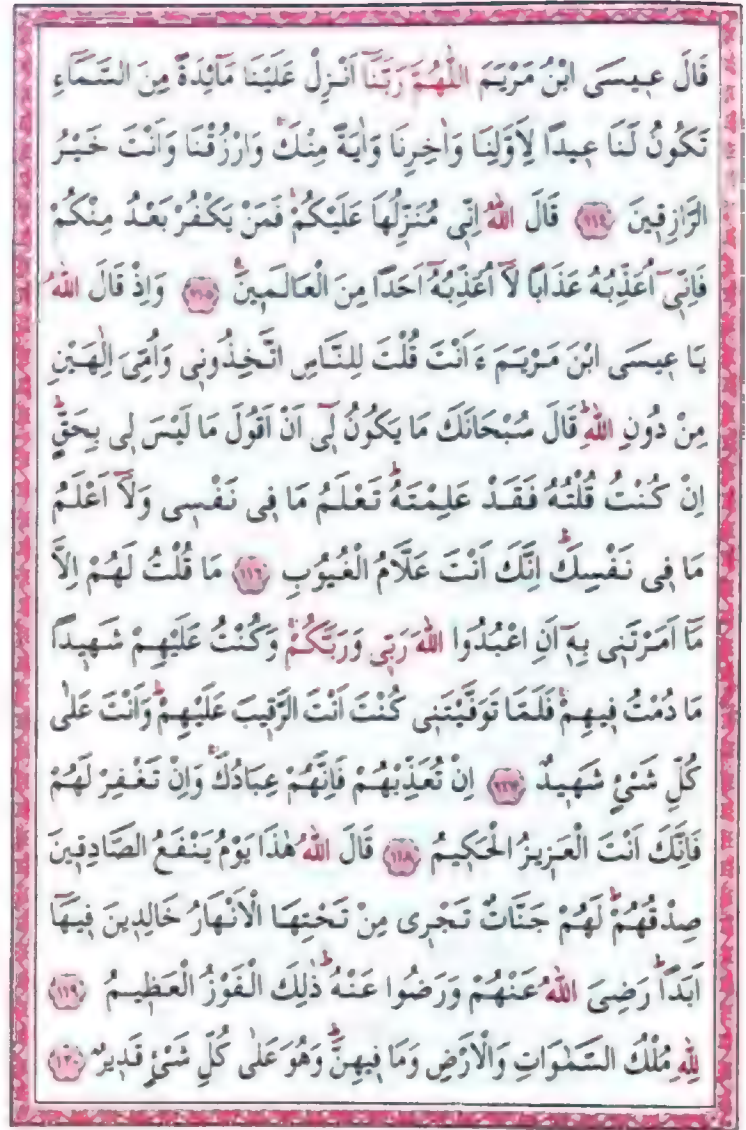 قَالَ عِيسَى ابْنُ مَرْيَمَ اللّٰهُمَّ رَبَّنَٓا اَنْزِلْ عَلَيْنَا مَٓائِدَةً مِنَ السَّمَٓاءِ
تَكُونُ لَنَا عِيدًا لِاَوَّلِنَا وَاٰخِرِنَا وَاٰيَةً مِنْكَۚ وَارْزُقْنَا وَاَنْتَ خَيْرُ
الرَّازِقِينَ ﴿١١٤﴾ قَالَ اللّٰهُ اِنِّي مُنَزِّلُهَا عَلَيْكُمْۚ فَمَنْ يَكْفُرْ بَعْدُ مِنْكُمْ
فَاِنِّٓي اُعَذِّبُهُ عَذَابًا لَٓا اُعَذِّبُهُٓ اَحَدًا مِنَ الْعَالَمِينَ۟ ﴿١١٥﴾ وَاِذْ قَالَ اللّٰهُ
يَا عِيسَى ابْنَ مَرْيَمَ ءَاَنْتَ قُلْتَ لِلنَّاسِ اتَّخِذُونِي وَاُمِّيَ اِلٰهَيْنِ
مِنْ دُونِ اللّٰهِۜ قَالَ سُبْحَانَكَ مَا يَكُونُ لِٓي اَنْ اَقُولَ مَا لَيْسَ لِي بِحَقٍّۜ
اِنْ كُنْتُ قُلْتُهُ فَقَدْ عَلِمْتَهُۜ تَعْلَمُ مَا فِي نَفْسِي وَلَٓا اَعْلَمُ
مَا فِي نَفْسِكَۜ اِنَّكَ اَنْتَ عَلَّامُ الْغُيُوبِ ﴿١١٦﴾ مَا قُلْتُ لَهُمْ اِلَّا
مَٓا اَمَرْتَنِي بِهِٓ اَنِ اعْبُدُوا اللّٰهَ رَبِّي وَرَبَّكُمْۚ وَكُنْتُ عَلَيْهِمْ شَهِيدًا
مَا دُمْتُ فِيهِمْۚ فَلَمَّا تَوَفَّيْتَنِي كُنْتَ اَنْتَ الرَّقِيبَ عَلَيْهِمْۜ وَاَنْتَ عَلٰى
كُلِّ شَيْءٍ شَهِيدٌ ﴿١١٧﴾ اِنْ تُعَذِّبْهُمْ فَاِنَّهُمْ عِبَادُكَۚ وَاِنْ تَغْفِرْ لَهُمْ
فَاِنَّكَ اَنْتَ الْعَزِيزُ الْحَكِيمُ ﴿١١٨﴾ قَالَ اللّٰهُ هٰذَا يَوْمُ يَنْفَعُ الصَّادِقِينَ
صِدْقُهُمْۜ لَهُمْ جَنَّاتٌ تَجْرِي مِنْ تَحْتِهَا الْاَنْهَارُ خَالِدِينَ فِيهَٓا
اَبَدًاۜ رَضِيَ اللّٰهُ عَنْهُمْ وَرَضُوا عَنْهُۜ ذٰلِكَ الْفَوْزُ الْعَظِيمُ ﴿١١٩﴾
لِلّٰهِ مُلْكُ السَّمٰوَاتِ وَالْاَرْضِ وَمَا فِيهِنَّۜ وَهُوَ عَلٰى كُلِّ شَيْءٍ قَدِيرٌ ﴿١٢٠﴾